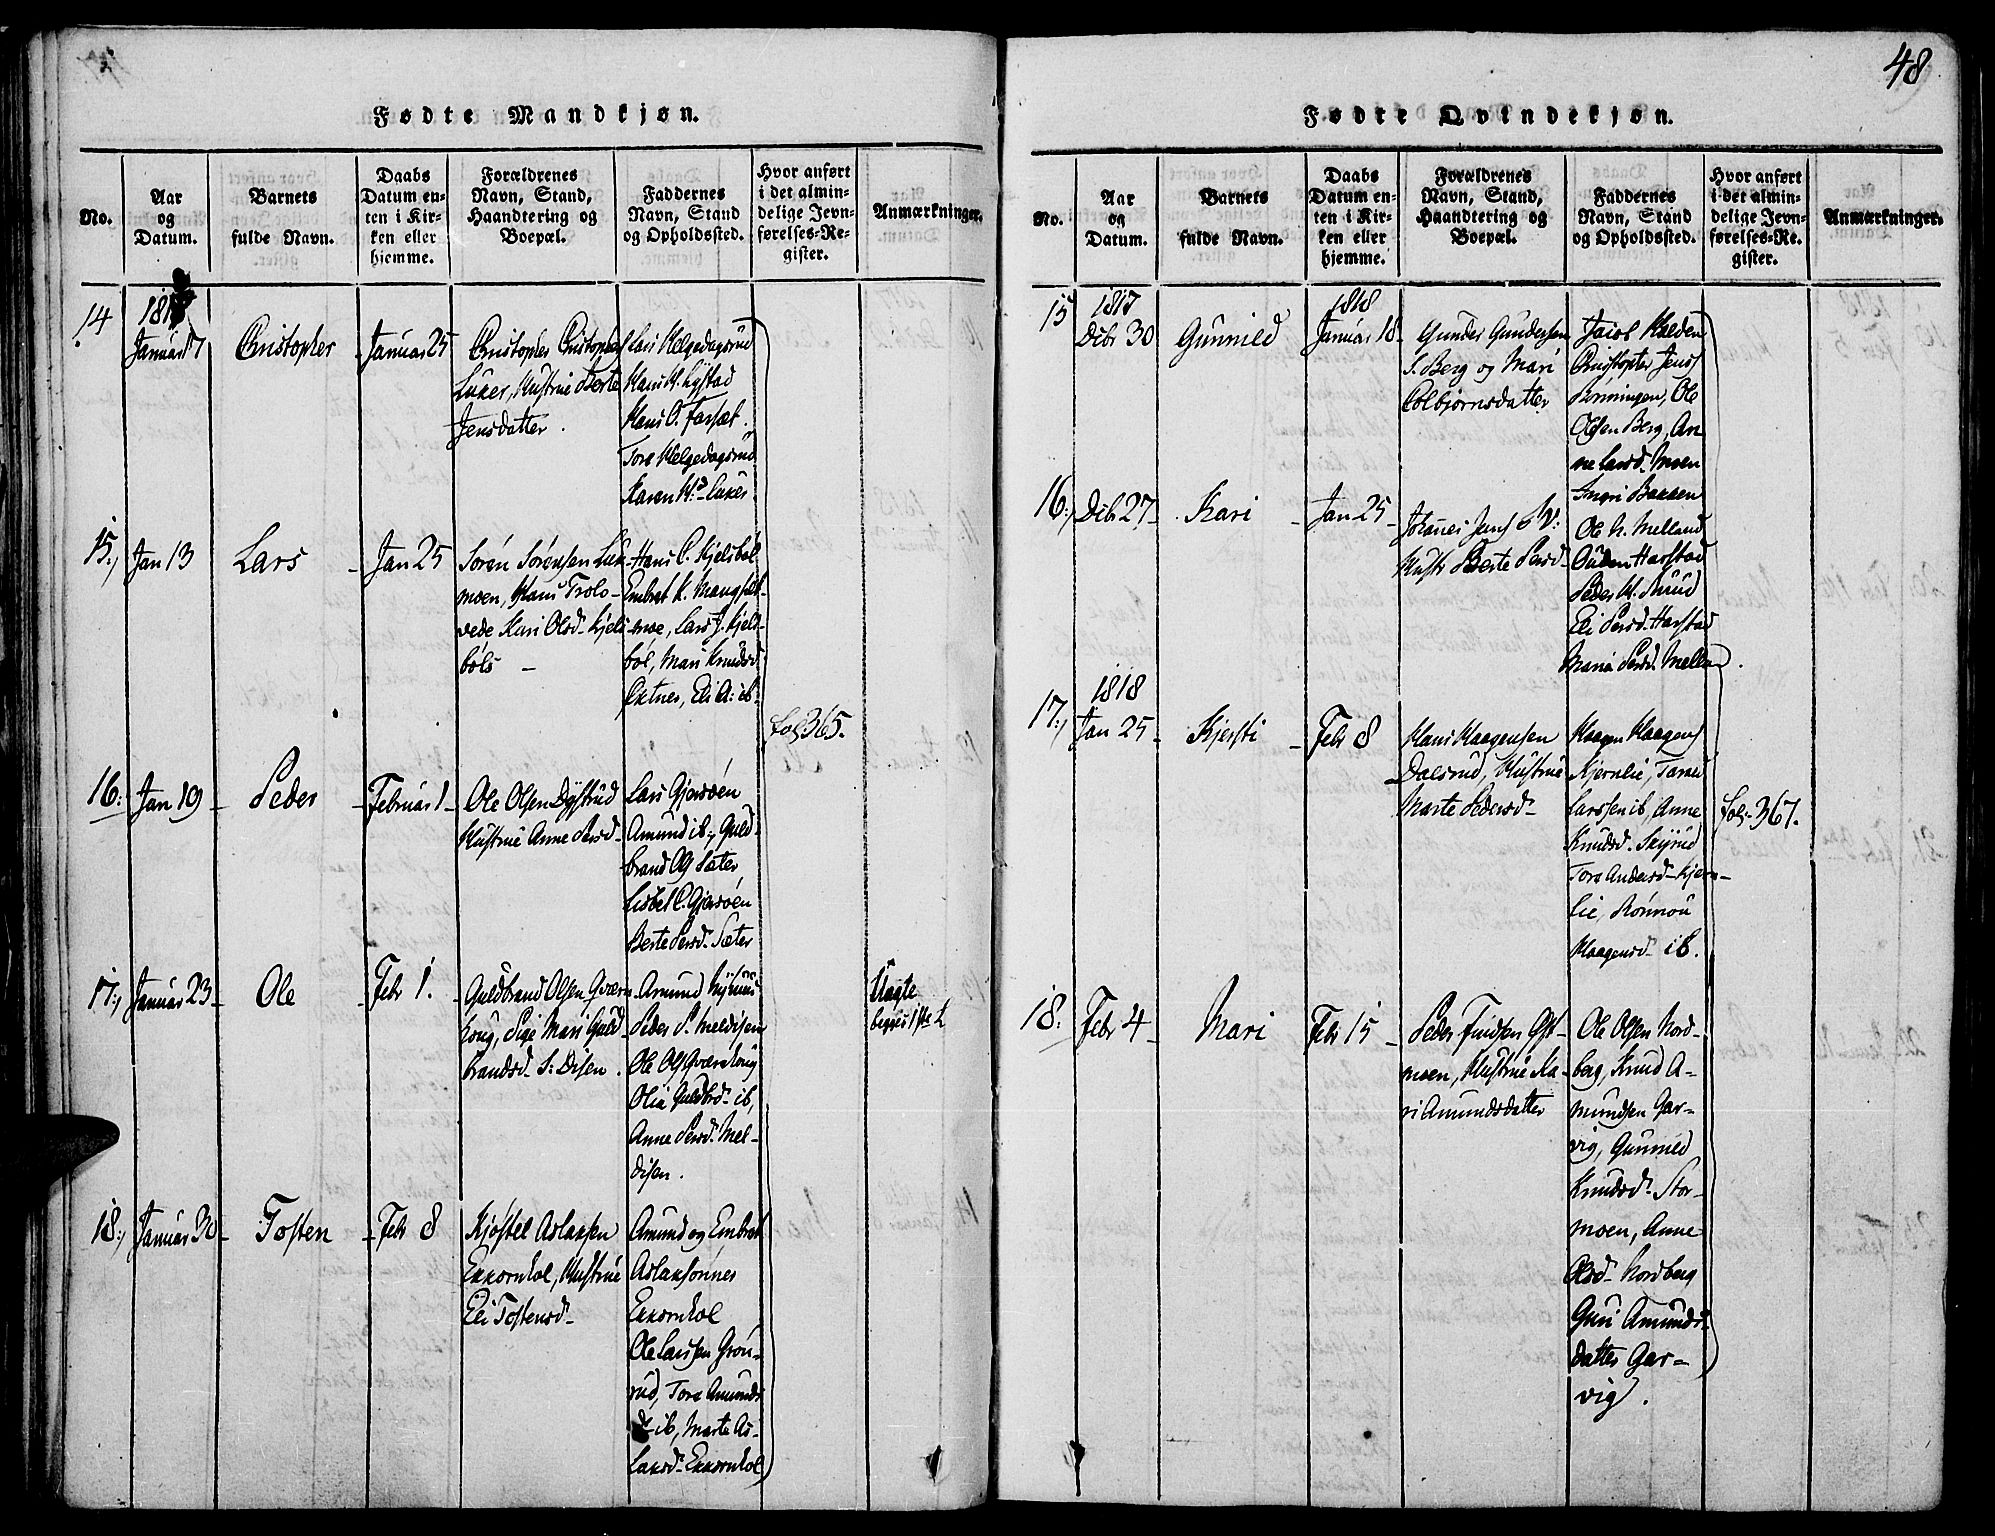 48
Fødte Mandkjøn.
No.
Aar
og
Datum.
Barnets
fulde Navn.
Daabs
Datum en-
ten i Kir-
ken eller
hjemme.
Forældrenes
Navn, Stand,
Haandtering og
Boepæl.
Faddernes
Navn, Stand
og Opholdssted.
Hvor anført
i det almin-
delige Jevn-
førelses-Re-
gister.
Anmærkninger.
14
1818
Januar 7
Christopher
Januar 25
Christopher Christophers
Luker, Hustrue Berte
Jensdatter.
Lars Helgedagsrud
Hans H. Lystad
Hans O. Farsæt.
Tore Helgedagsrud
Karen Hd. Luker.
15.
Jan 13
Lars
Jan 25
Sørén Sørensen Luk-
moen, Hans Trolo-
vede Kari Olsd. Kjels
böls
Hans C. Kjelsböl
Embret K. Mangset-
moe, Lars J. Kjels-
bøl, Mari Knudsd
Øxtnes, Eli A: ib.
fol 365.
16.
Jan 19
Peder
Februar 1
Ole Olsen Dystrud
Hustrue Anne Persd.
Lars Gjersöen
Amund ib., Guld-
brand Ols Sæter,
Lisbet C. Gjersöen
Berte Persd. Sæter
17.
Januar 23
Ole
Febr 1.
Guldbrand Olsen Qværn
houg, Pige Mari Guld
brandsd. S: Disen.
Amund
Peder P. Meldisen
Ole Ols Qværnhoug
Olia Guldbd. ib,
Anne Persd. Mel-
disen.
Uægte
begges 1ste L
18.
Januar 30
Tosten
Febr 8
Kjöstel Aslaksen
Ekkornhol, Hustrue
Eli Tostensd.
Amund og Embret
Aslaksönner
Ekkornhol
Ole Larsen Grön-
rud, Tore Amunds
d. ib, Marte As-
laksd. Ekkornhol
Fødte Qvindekjøn.
No.
Aar
og
Datum.
Barnets
fulde Navn.
Daabs
Datum en-
ten i Kir-
ken eller
hjemme.
Forældrenes
Navn, Stand,
Haandtering og
Boepæl.
Faddernes
Navn, Stand
og Opholdssted.
Hvor anført
i det almin-
delige Jevn-
førelses-Re-
gister.
Anmærkninger.
15
1817
Dcbr 30
Gunnild
1818
Januar 18
Gunder Gundersen
S. Berg og Mari
Colbjörnsdatter
Jacob Halden
Christopher Jens
Brüningen, Ole
Olsen Berg, An-
ne Larsd. Moen
Ingri Bakken
16.
Dcbr 27
Kari
Jan 25
Johanes Jens
Hustr Berte Persd.
Ole H. Melland
Ouden Harstad
Peder H.
Eli Persd. Harstad
Maria Persd. Mella.
17.
1818
Jan 25
Kjersti
Febr 8
Hans Haagensen
Dalsrud, Hustrue
Marte Pedersd.
Haagen Haagens
Kjernlie, Tarald
Larssen ib, Anne
Knudsd. Skyrud
Tore Andersd. Kjern-
lie, Rönnou
Haagensd. ib.
fol. 367.
18.
Febr 4
Mari
Febr 15
Peder Findsen Øst-
moen, Hustrue Ka-
ri Amundsdatter
Ole Olsen Nord-
berg, Knud A-
mundsen Gar-
vig, Gunnild
Knudsd. Stor-
moen, Anne
Olsd. Nordberg
Guri Amunds-
datter Gar-
vig.